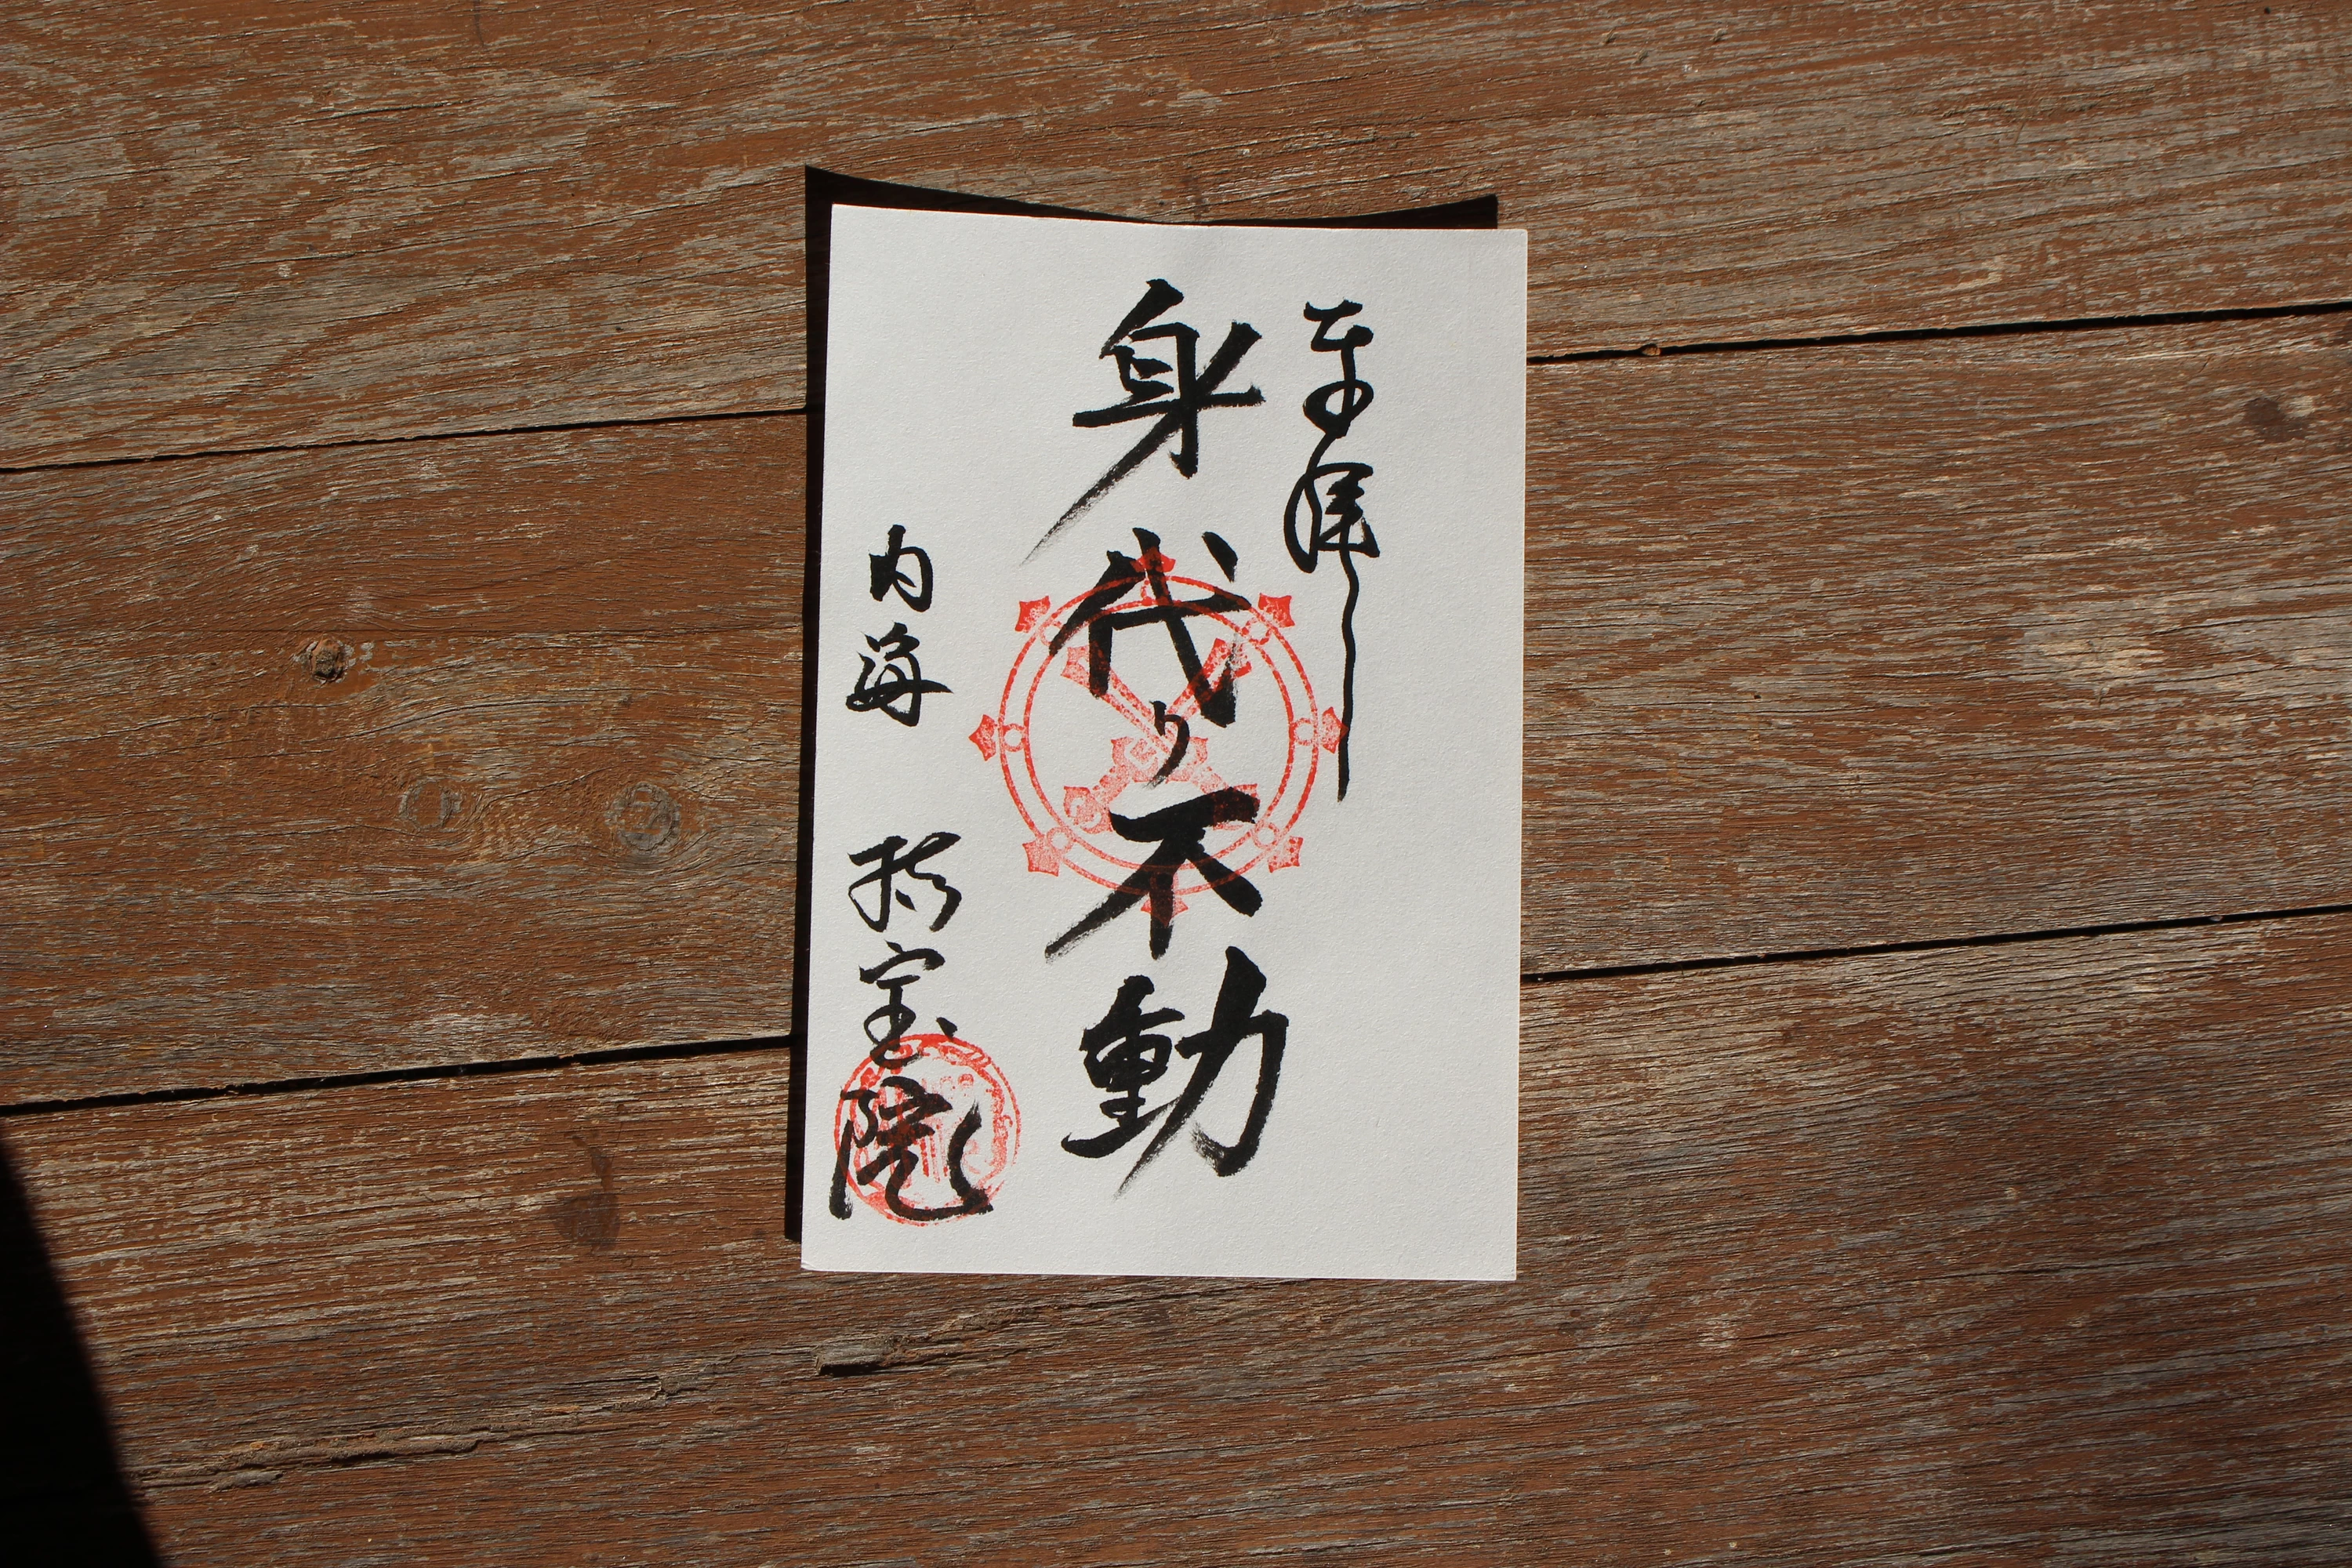 奉拝
身代り不動
内海 持宝院